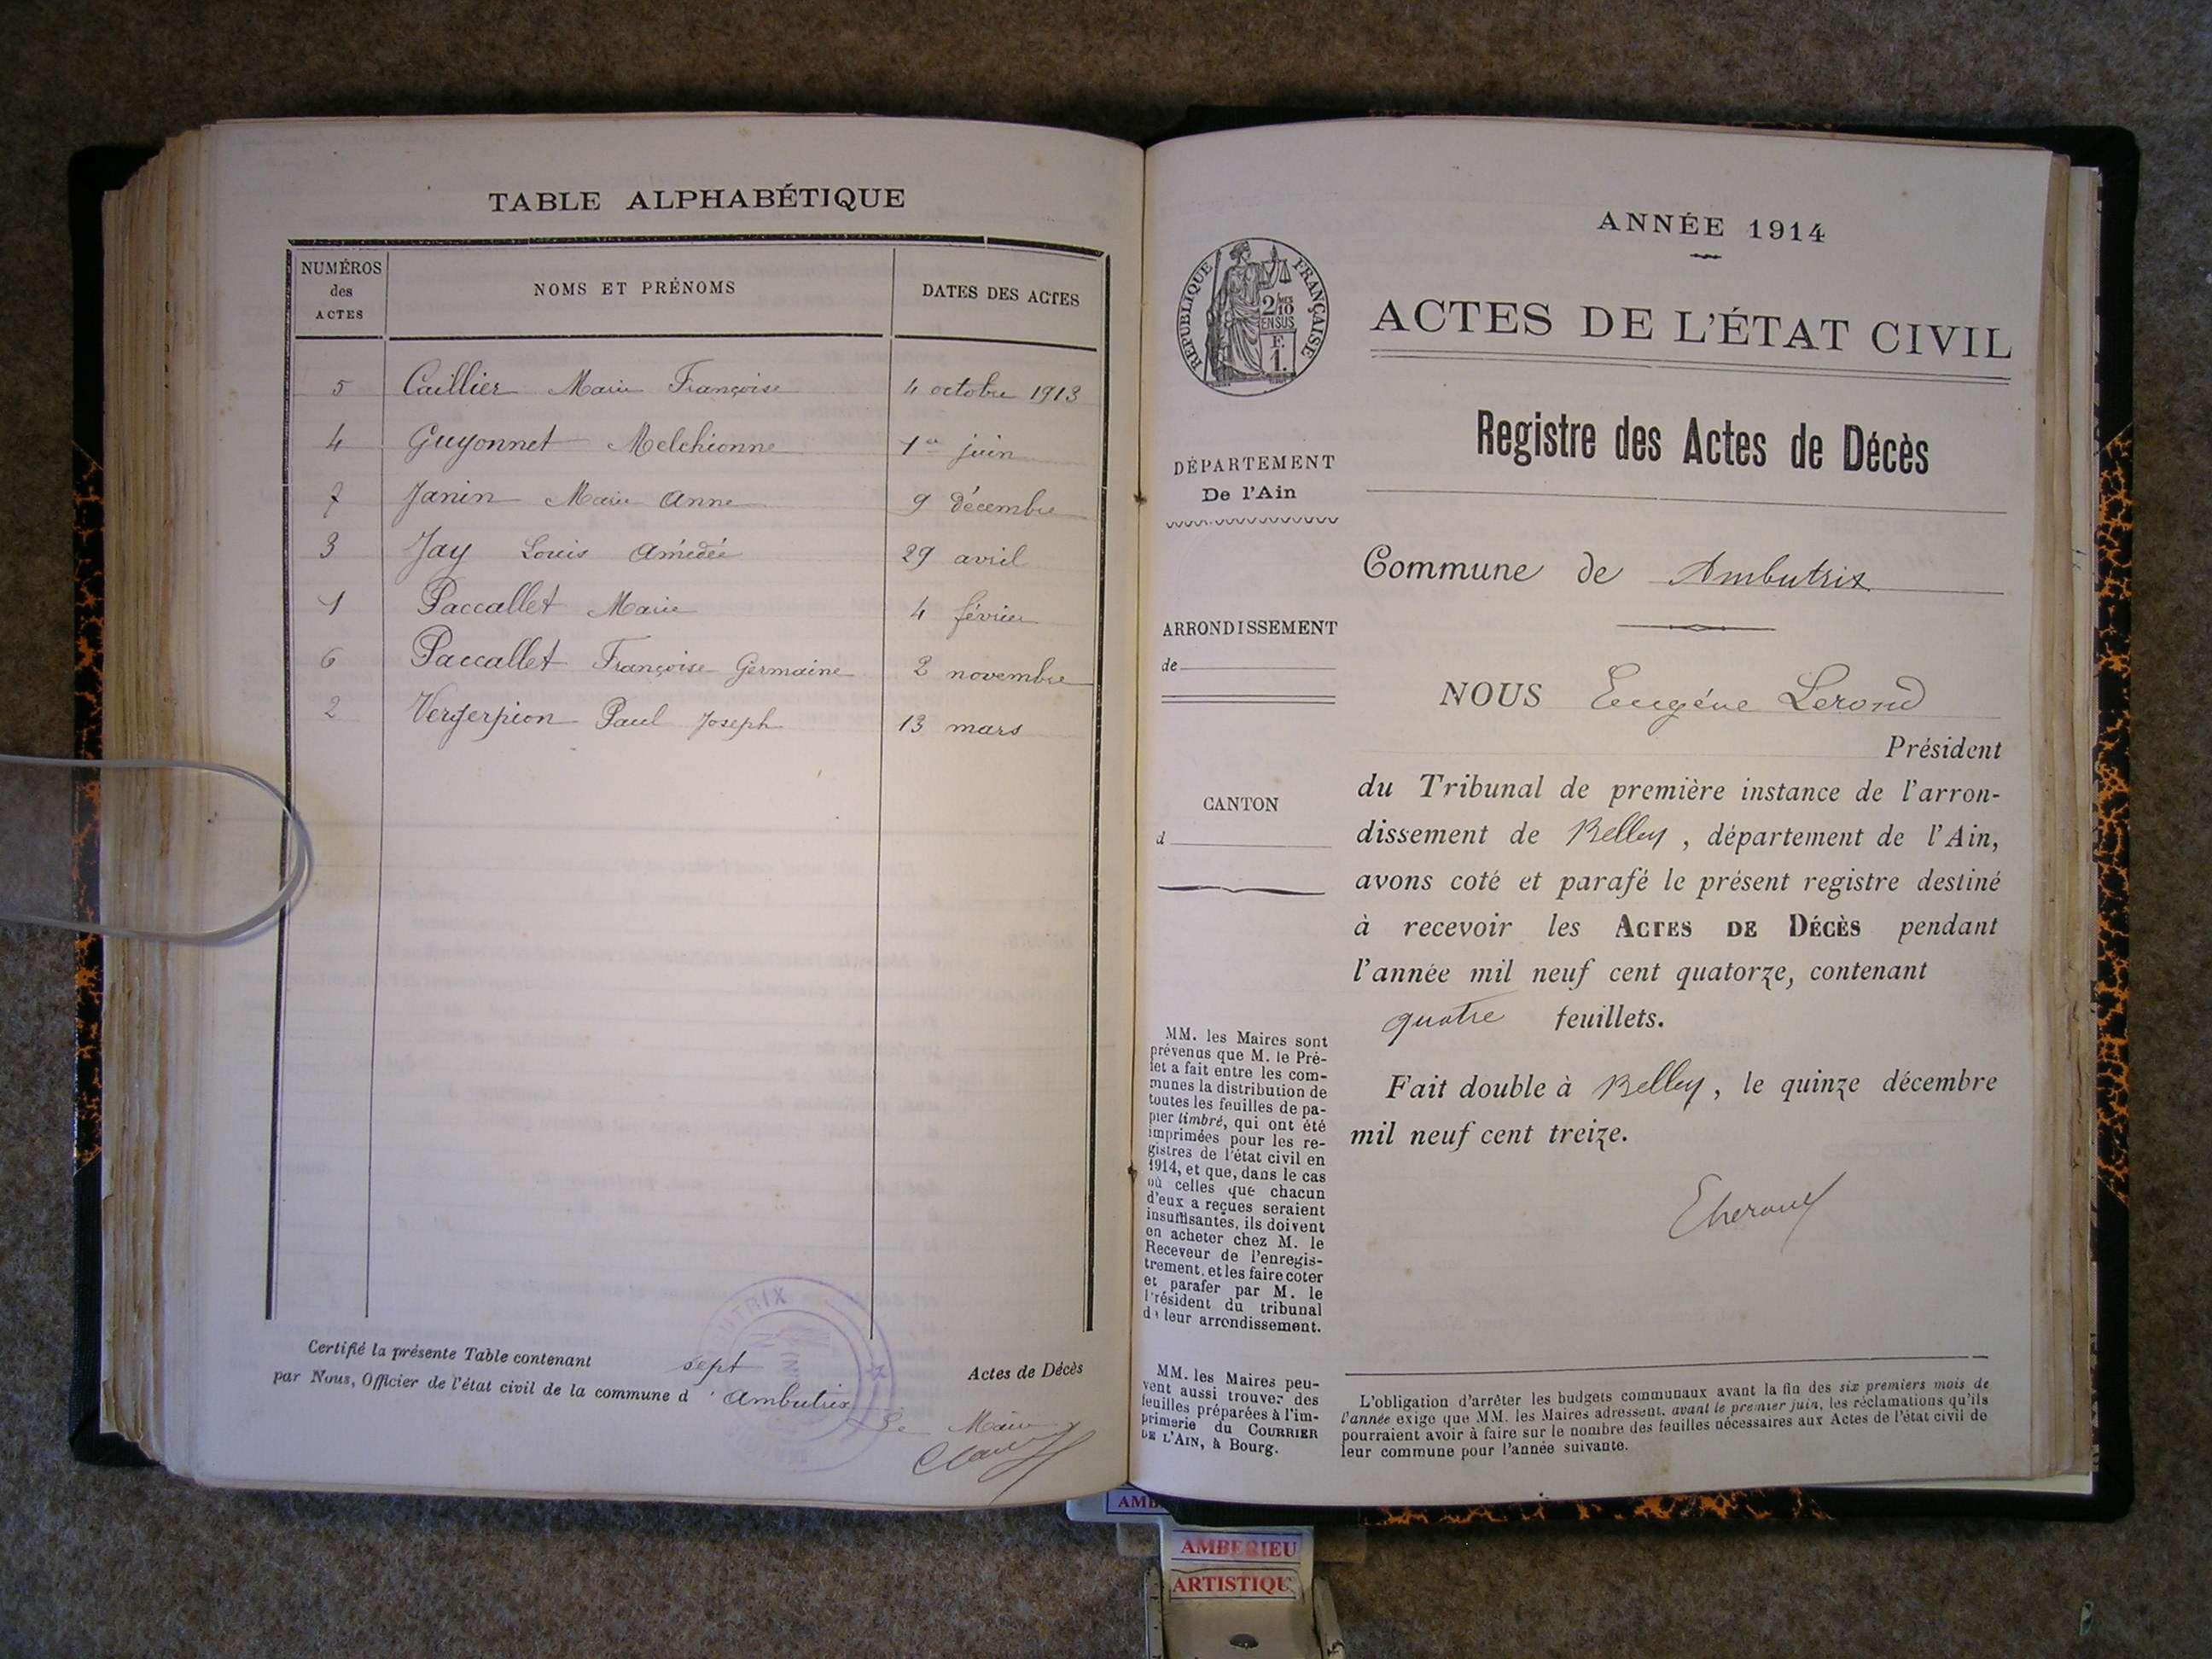 TABLE ALPHABÉTIQUE
NUMÉROS
des
ACTES
NOMS ET PRÉNOMS
DATES DES ACTES
5 Caillier Marie Françoise 4 octobre 1913
4 Guyonnet Melchionne 1er juin
7 Janin Marie Anne 9 décembre
3 Jay Louis Amédée 29 avril
1 Paccallet Marie 4 février
6 Paccallet Françoise Germaine 2 novembre
2 Vergerpion Paul Joseph 13 mars
Certifié la présente Table contenant sept Actes de Décès
par Nous, Officier de l'état civil de la commune d'Ambutrix
Le Maire
ANNÉE 1914
RÉPUBLIQUE FRANÇAISE
2/10
EN SUS
F.
1.
ACTES DE L'ÉTAT CIVIL
Registre des Actes de Décès
DÉPARTEMENT
De l'Ain
Commune de Ambutrix
ARRONDISSEMENT
de
NOUS Eugéne Lerond
Président
CANTON
d
du Tribunal de première instance de l'arron-
dissement de Belley, département de l'Ain,
avons coté et parafé le présent registre destiné
à recevoir les ACTES DE DÉCÈS pendant
l'année mil neuf cent quatorze, contenant
quatre feuillets.
Fait double à Belley, le quinze décembre
mil neuf cent treize.
MM. les Maires sont
prévenus que M. le Pré-
fet a fait entre les com-
munes la distribution de
toutes les feuilles de pa-
pier timbré, qui ont été
imprimées pour les re-
gistres de l'état civil en
1914, et que, dans le cas
où celles que chacun
d'eux a reçues seraient
insuffisantes, ils doivent
en acheter chez M. le
Receveur de l'enregis-
trement, et les faire coter
et parafer par M. le
Président du tribunal
de leur arrondissement.
MM. les Maires peu-
vent aussi trouver des
feuilles préparées à l'im-
primerie du COURRIER
DE L'AIN, à Bourg.
L'obligation d'arrêter les budgets communaux avant la fin des six premiers mois de
l'année exige que MM. les Maires adressent, avant le premier juin, les réclamations qu'ils
pourraient avoir à faire sur le nombre des feuilles nécessaires aux Actes de l'état civil de
leur commune pour l'année suivante.
AMBERIEU
ARTISTIQU